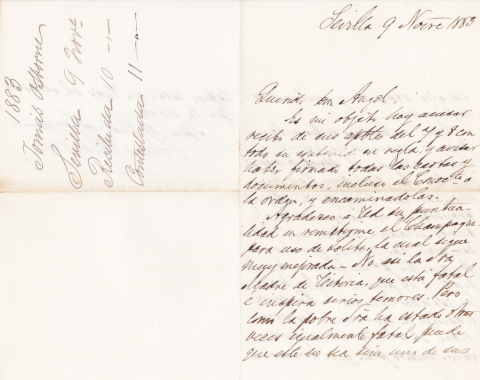 1883
Tomás Osborne
Sevilla 9 Nove
Recibida 10 -,-
Contestada 11 -,-
Sevilla 9 Novre 1883
Querido Angel
Es mi objeto hoy acusar
recibo de sus del 7 y 8 con
todo su en regla, y avisar
haber firmado todas las cartas y
documentos, incluso el
la orden, y encaminadolas.
Agradezco a Ud su puntua-
lidad en remitirme el Champagne
para uso de Lolita, la cual sigue
muy mejorada - No así la Sra
Madre de Victoria, que está fatal
e inspira serios temores. Pero
como la pobre Sra ha estado otras
veces igualmente fatal, puede
que este no sea sino uno de sus